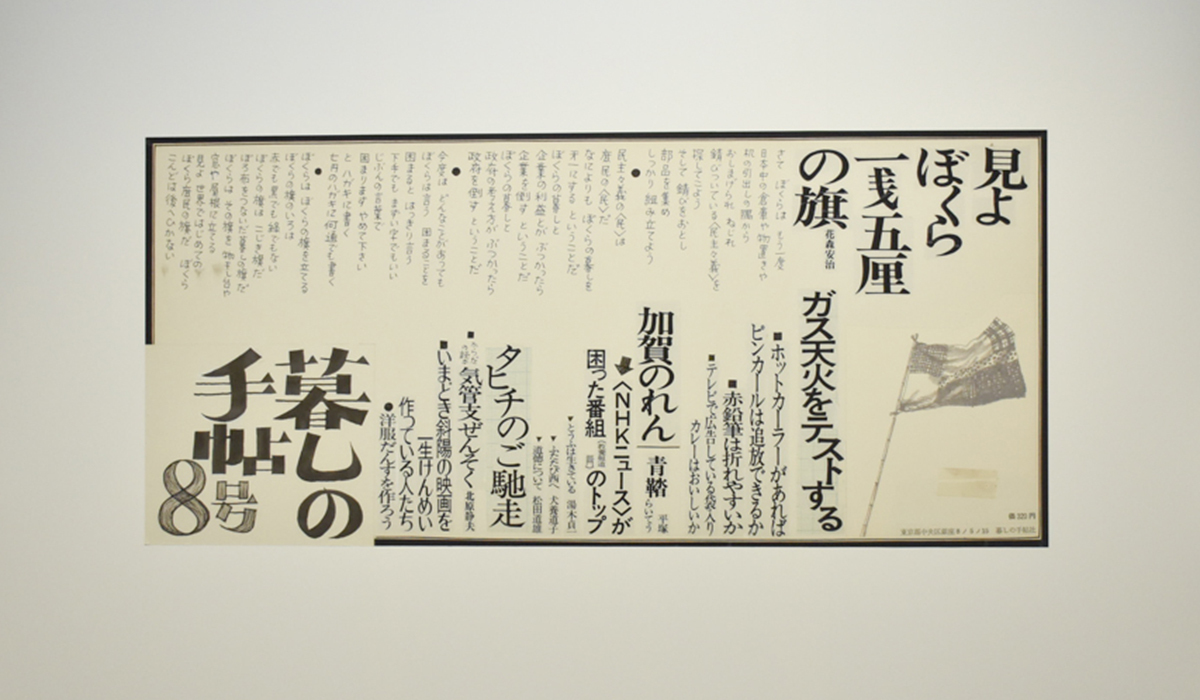 見よ
ぼくら
一戔五厘
の旗
花森安治
さて ぼくらは もう一度
日本中の倉庫や物置きや
机の引出しの隅から
おしまげられ ねじれ
錆びついている〈民主々義〉を
探してこよう
そして 錆びをおとし
部品を集め
しっかり組み立てよう
●
民主々義の〈民〉は
庶民の〈民〉だ
なによりも ぼくらの暮しを
第一にする ということだ
ぼくらの暮しと
企業の利益とが ぶつかったら
企業を倒す ということだ
ぼくらの暮しと
政府の考え方が ぶつかったら
政府を倒す ということだ
●
今度は どんなことがあっても
ぼくらは言う 困まることを
困まると はっきり言う
下手でも まずい字でもいい
じぶんの言葉で
困まります やめて下さい
と ハガキに書く
七円のハガキに 何通でも書く
●
ぼくらは ぼくらの旗を立てる
ぼくらの旗のいろは
赤でも黒でも緑でもない
ぼくらの旗は こじき旗だ
ぼろ布をつないだ暮しの旗だ
ぼくらは その旗を 物干し台や
窓や屋根に立てる
見よ 世界ではじめての
ぼくら庶民の旗だ ぼくら
こんどは後へひかない
ガス天火をテストする
■ホットカーラーがあれば
ピンカールは追放できるか
■赤鉛筆は折れやすいか
■テレビで広告している袋入り
カレーはおいしいか
加賀のれん 青鞜 平塚らいてう
〈NHKニュース〉が
困った番組のトップ
▼とうふは生きている 湯木貞一
▼ふたたび西へ 犬養道子
▼道徳について 松田道雄
タヒチのご馳走
■気管支ぜんそく 北原静夫
■いまどき斜陽の映画を
一生けんめい
作っている人たち
●洋服だんすを作ろう
暮しの
手帖
8号
価320円
東京都中央区銀座8ノ5ノ15 暮しの手帖社